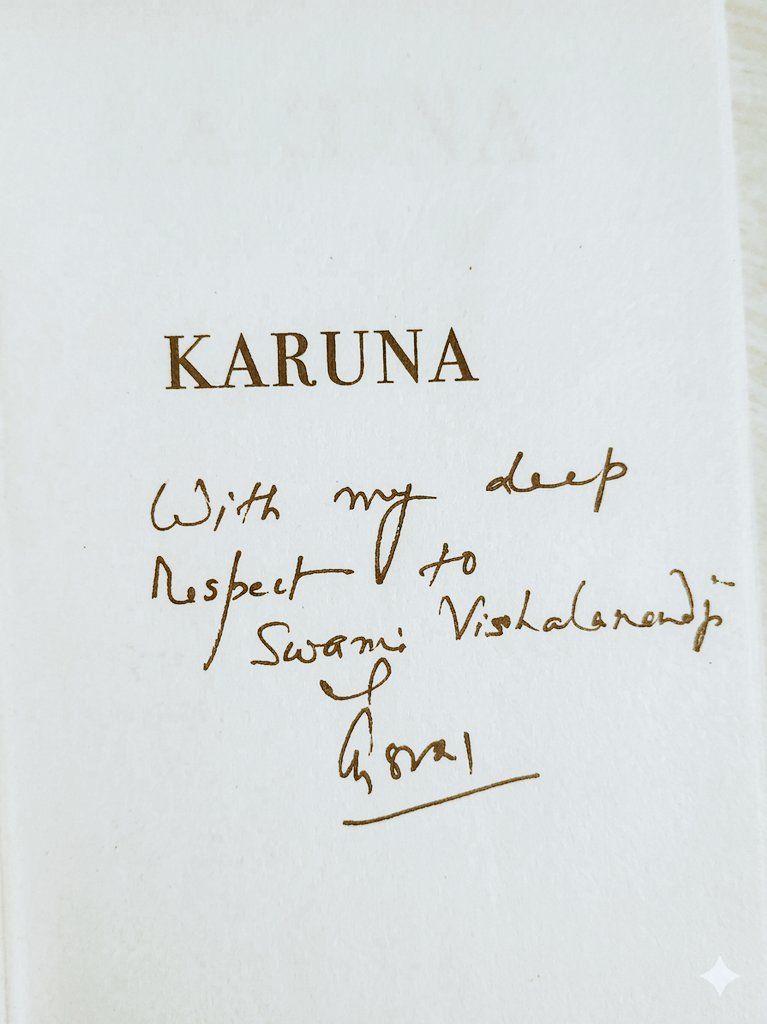 KARUNA
With my deep
Respect to
Swami Vishalanandji